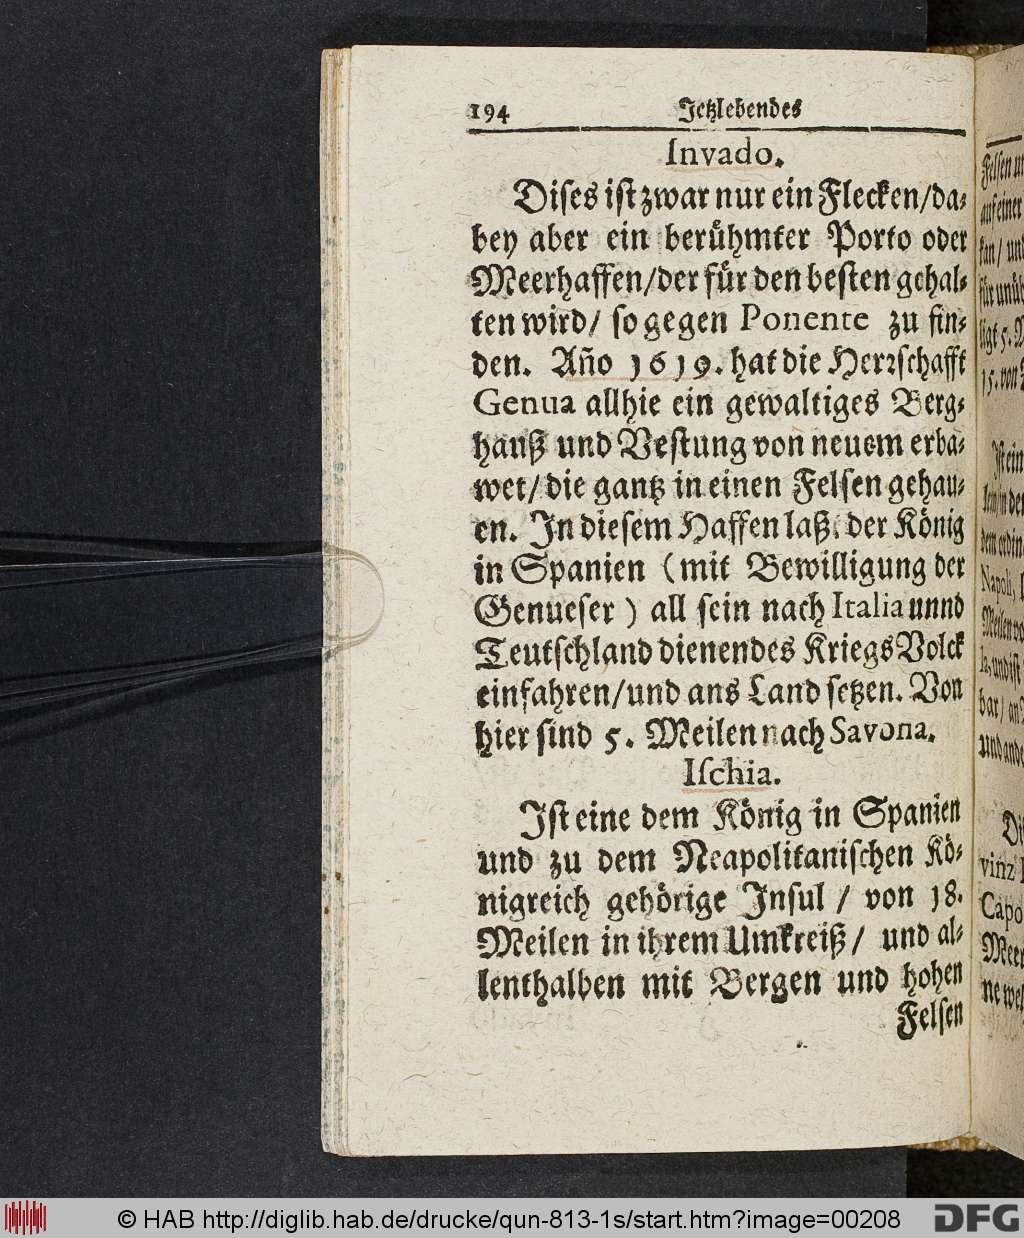 194 Jetzlebendes
Invado.
Dises ist zwar nur ein Flecken/da-
bey aber ein berühmter Porto oder
Meerhaffen/der für den besten gehal-
ten wird/ so gegen Ponente zu fin-
den. Año 1619. hat die Herrschafft
Genua allhie ein gewaltiges Berg-
hauß und Vestung von neuem erba-
wet/die gantz in einen Felsen gehau-
en. In diesem Haffen laßt der König
in Spanien (mit Bewilligung der
Genueser) all sein nach Italia unnd
Teutschland dienendes Kriegs Volck
einfahren/und ans Land setzen. Von
hier sind 5. Meilen nach Savona.
Ischia.
Ist eine dem König in Spanien
und zu dem Neapolitanischen Kö-
nigreich gehörige Insul / von 18.
Meilen in ihrem Umkreiß/ und al-
lenthalben mit Bergen und hohen
Felsen
© HAB http://diglib.hab.de/drucke/qun-813-1s/start.htm?image=00208
DFG